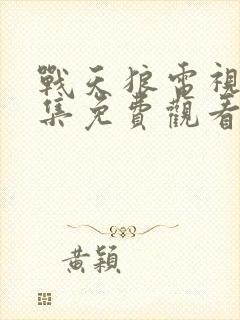 戰天狼雷視
集免費觀看
黃穎